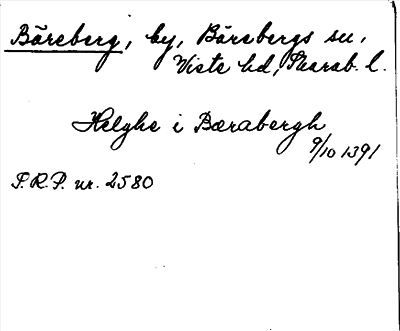 Bäreberg, by, Bärebergs sn,
Viste hd, Skarab. l.
Helghe i Bærabergh
9/10 1391
S.R.P. nr. 2580